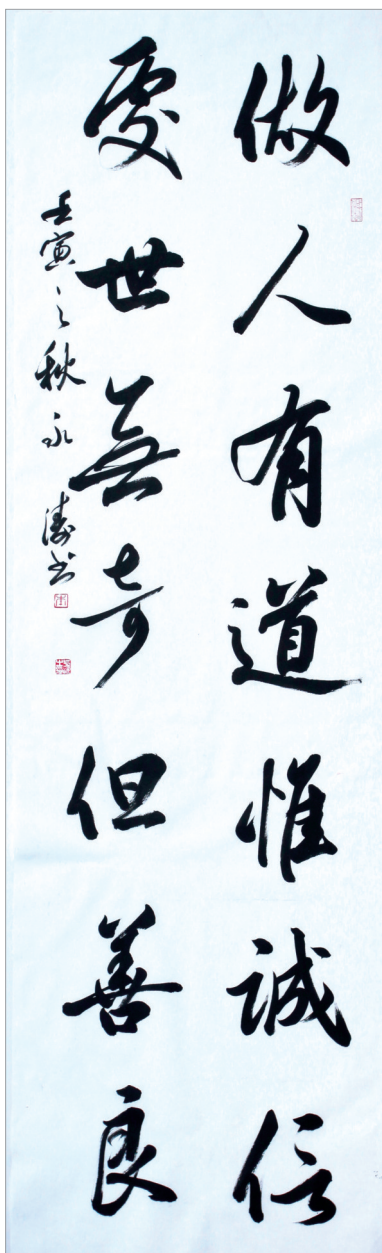 做人有道惟誠信
處世無奇但善良
壬寅之秋永濤书